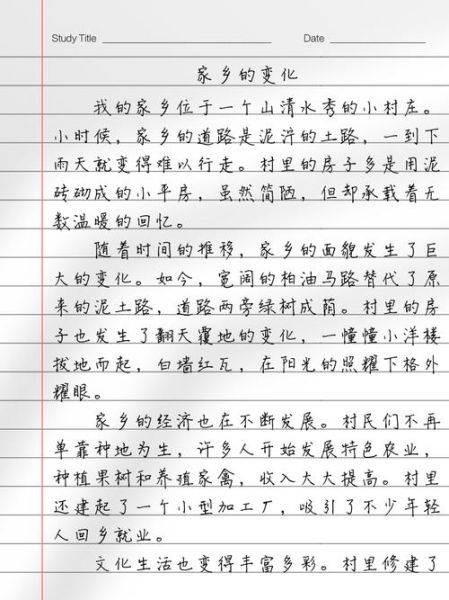 Study Title
Date
家乡的变化
我的家乡位于一个山清水秀的小村庄。
小时候，家乡的道路是泥泞的土路，一到下
雨天就变得难以行走。村里的房子多是用泥
砖砌成的小平房，虽然简陋，但却承载着无
数温暖的回忆。
随着时间的推移，家乡的面貌发生了巨
大的变化。如今，宽阔的柏油马路替代了原
来的泥土路，道路两旁绿树成荫。村里的房
子也发生了翻天覆地的变化，一幢幢小洋楼
拔地而起，白墙红瓦，在阳光的照耀下格外
耀眼。
家乡的经济也在不断发展。村民们不再
单靠种地为生，许多人开始发展特色农业，
种植果树和养殖家禽，收入大大提高。村里
还建起了一个小型加工厂，吸引了不少年轻
人回乡就业。
文化生活也变得丰富多彩。村里修建了